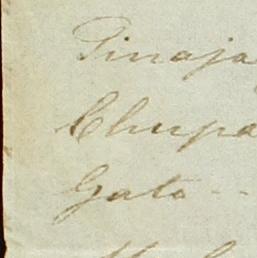 Tinaja
Chupa
Gato --